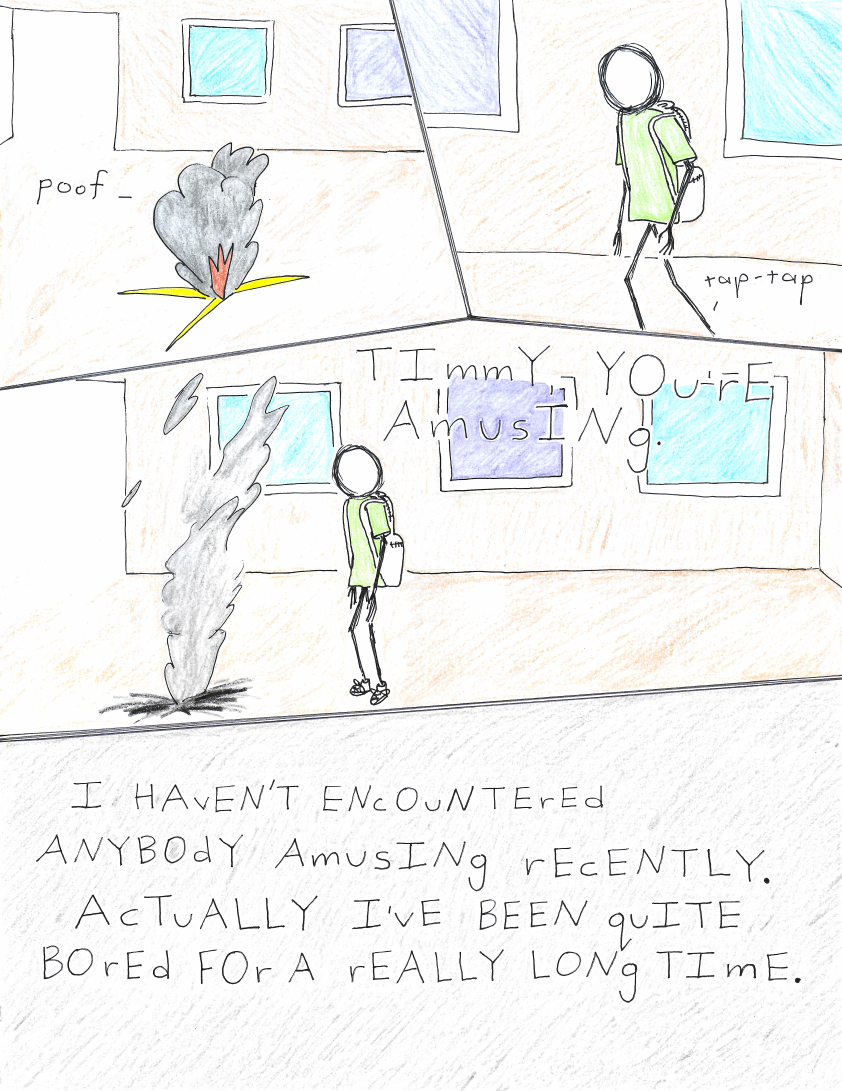 poof
tap-tap
TImmY, YOu'rE
AmusINg.
I HAvEN'T ENcOuNTErEd
ANYBOdY AmusINg rEcENTLY.
AcTuALLY I'vE BEEN quITE
BOrEd FOr A rEALLY LONg TImE.